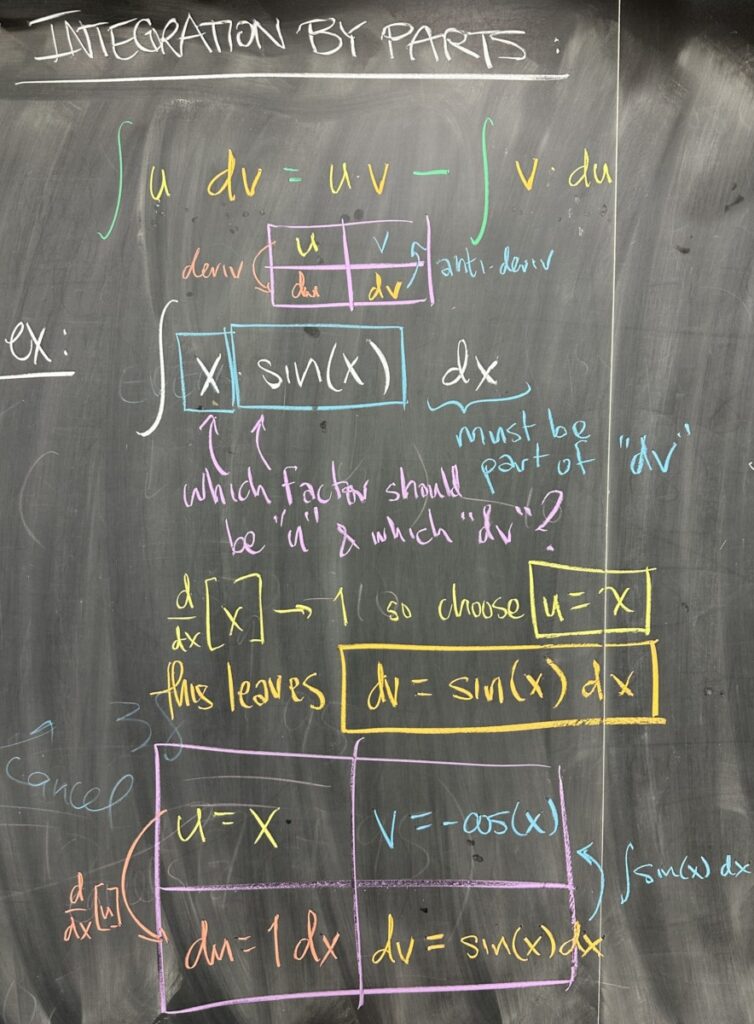 INTEGRATION BY PARTS:
∫ u dv = u·v − ∫ v·du
u v
deriv du dv anti-deriv
ex: ∫ x · sin(x) dx
must be
part of "dv"
which factor should
be "u" & which "dv"?
d/dx [x] → 1 so choose u = x
this leaves dv = sin(x) dx
cancel
u = x v = -cos(x)
d/dx [u] ∫ sin(x) dx
du = 1 dx dv = sin(x) dx